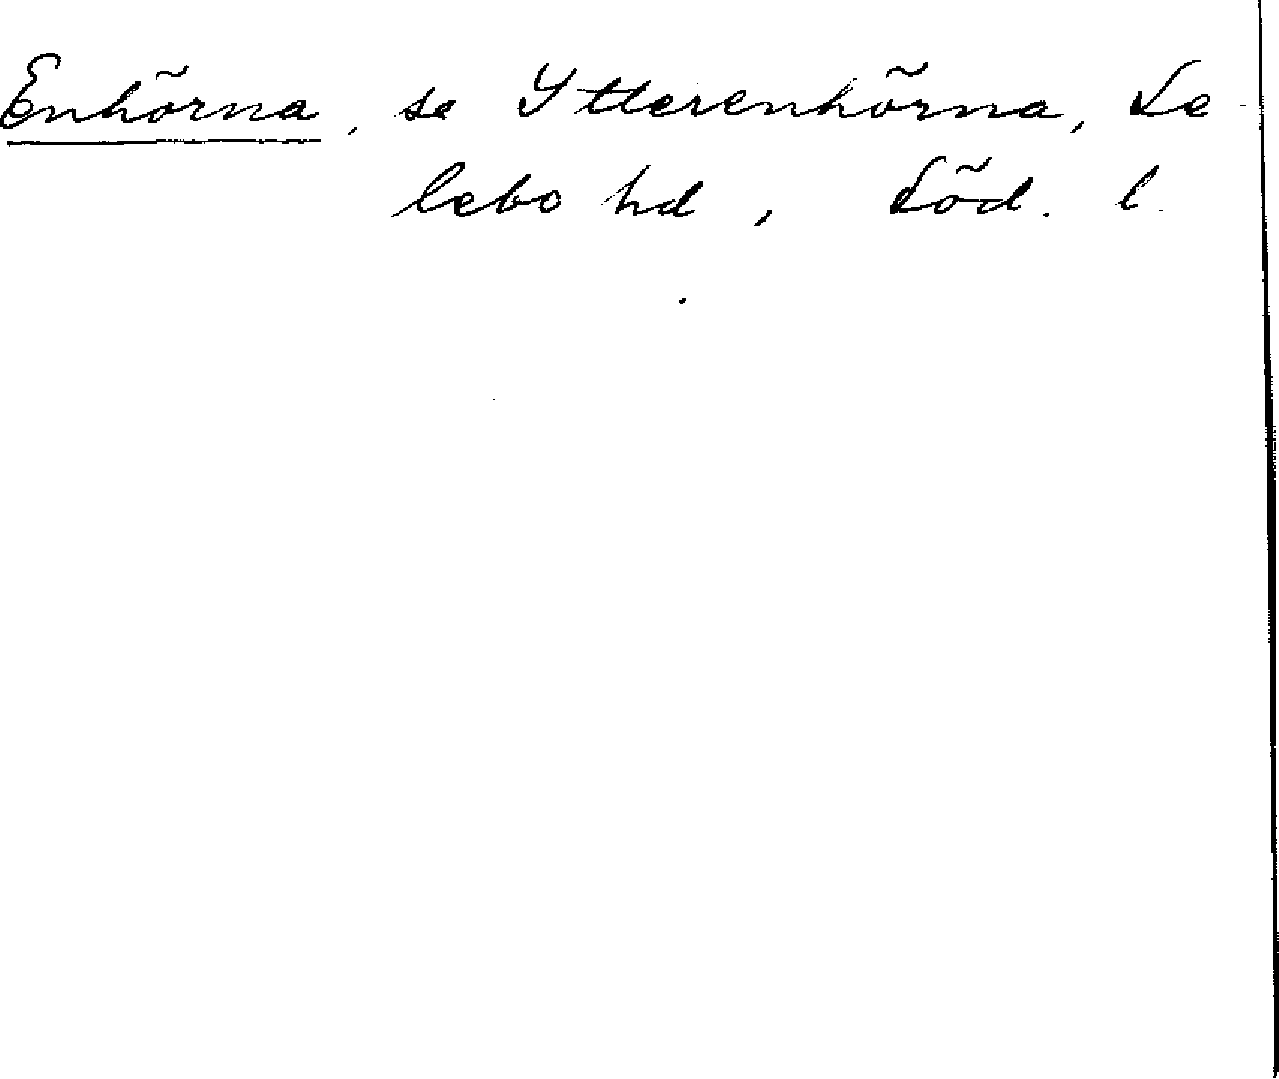 Enhörna, se Ytterenhörna, Se-
lebo hd, Söd. l.